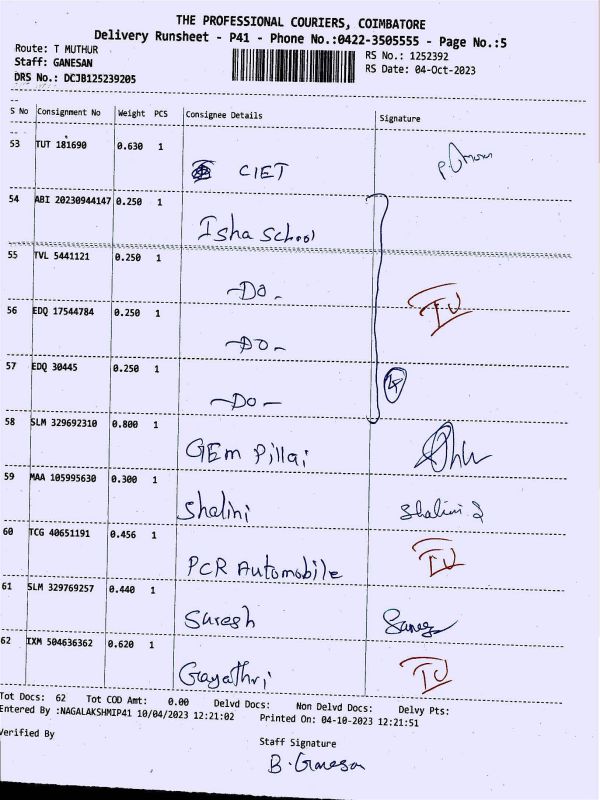 THE PROFESSIONAL COURIERS, COIMBATORE
Delivery Runsheet - P41 - Phone No.:0422-3505555 - Page No.:5
Route: T MUTHUR
RS No.: 1252392
Staff: GANESAN
RS Date: 04-Oct-2023
DRS No.: DCJB125239205
S No Consignment No Weight PCS Consignee Details Signature
53 TUT 181690 0.630 1
CIET
54 ABI 20230944147 0.250 1
Isha School
55 TVL 5441121 0.250 1
-Do-
56 EDQ 17544784 0.250 1
-DO-
57 EDQ 30445 0.250 1
-Do-
4
58 SLM 329692310 0.800 1
GEm Pillai
59 MAA 105995630 0.300 1
Shalini Shalini
60 TCG 40651191 0.456 1
PCR Automobile
61 SLM 329769257 0.440 1
Suresh
62 IXM 504636362 0.620 1
Gayathri
Tot Docs: 62 Tot COD Amt: 0.00 Delvd Docs: Non Delvd Docs: Delvy Pts:
Entered By :NAGALAKSHMIP41 10/04/2023 12:21:02 Printed On: 04-10-2023 12:21:51
Verified By
Staff Signature
B. Ganesan